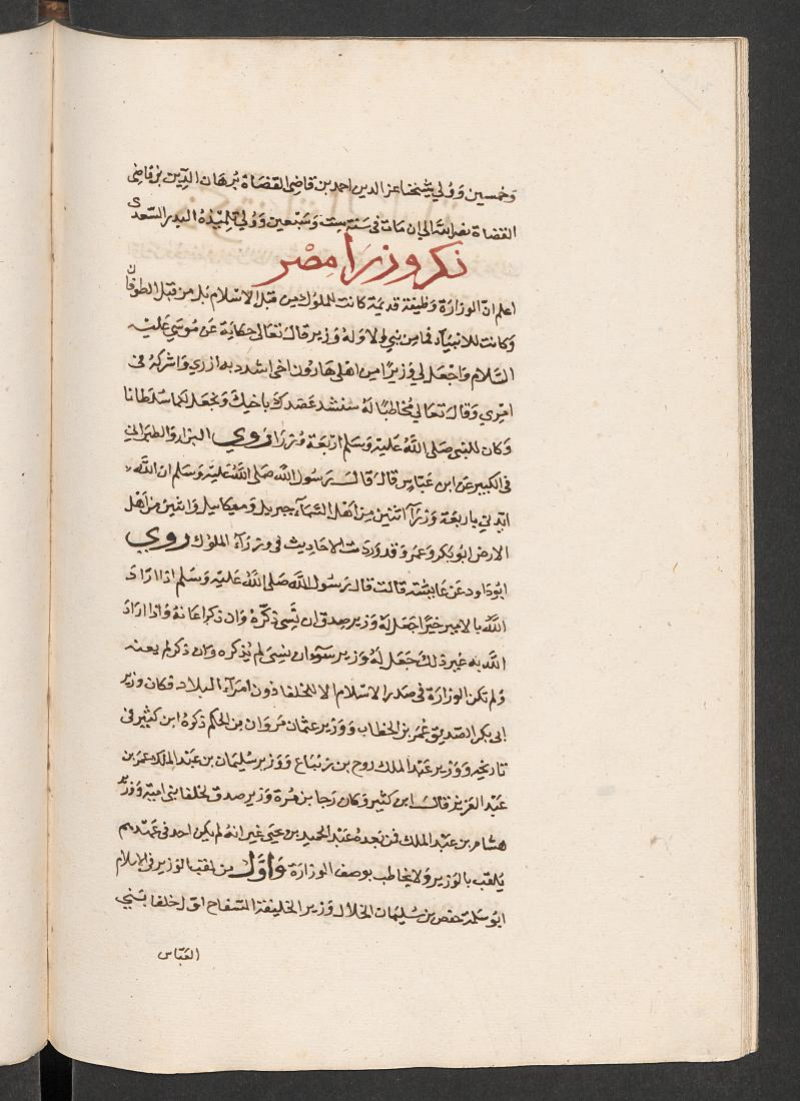 وخمسين وولي شيخنا عز الدين احمد بن قاضي القضاة برهان الدين بن قاضي
القضاة نصر الله الي ان مات في سنة ست وسبعين وولي تلميذه البدر السعدي
ذكر وزرا مصر
اعلم ان الوزارة وظيفة قديمة كانت للملوك من قبل الاسلام بل من قبل الطوفان
وكانت للانبيآء فما من نبي الا وله وزير قال تعالى حكاية عن موسي عليه
السلام واجعل لي وزيرا من اهلي هارون اخي اشدد به ازري واشركه في
امري وقال تعالي مخاطبا له سنشد عضدك باخيك ونجعل لكما سلطانا
وكان للنبي صلى الله عليه وسلم اربعة وزرا روي البزار والطبراني
في الكبير عن ابن عباس قال قال رسول الله صلى الله عليه وسلم ان الله
ايدني باربعة وزرآ اثنين من اهل السمآء جبريل وميكاييل واثنين من اهل
الارض ابو بكر وعمر وقد وردت الاحاديث في وزرآء الملوك روي
ابوداود عن عايشة قالت قال رسول الله صلى الله عليه وسلم اذا اراد
الله بالامير خيرا جعل له وزير صدق ان نسي ذكره وان ذكر اعانه واذا اراد
الله به غير ذلك جعل له وزير سوء ان نسي لم يذكره وان ذكر لم يعنه
ولم تكن الوزارة في صدر الاسلام الا للخلفا دون امرآء البلاد فكان وزير
ابي بكر الصديق عمر بن الخطاب ووزير عثمان مروان بن الحكم ذكره ابن كثير في
تاريخه ووزير عبد الملك روح بن زنباع ووزير سليمان بن عبد الملك عمر بن
عبد العزيز قال ابن كثير وكان رجا بن وزير صدق لخلفا بني امية ووزر
هشام بن عبد الملك فمن بعده عبد الحميد بن يحيى غير انه لم يكن احد في عهدهم
يلقب بالوزير ولا يخاطب بوصف الوزارة واول من لقب الوزير في الاسلام
ابو سلمة حفص بن سليمان الخلال وزير الخليفة السفاح اول خلفا بني
العباس